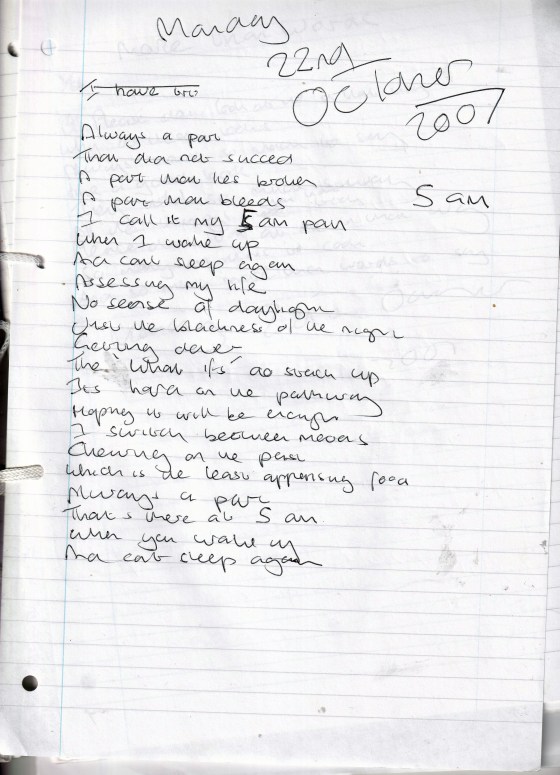 Monday
22nd
October
2007
I have bro
Always a part
That did not succeed
A part that lies broken
A part that bleeds
5 am
I call it my 5 am pain
When I wake up
And cant sleep again
Assessing my life
No sense of daylight
Just the blackness of the night
Getting
The 'What ifs' do stack up
Its hard on the pathway
Hoping it will be enough
I switch between moods
Chewing on the past
Which is the least appetising food
Always a part
That's there at 5 am
When you wake up
And cant sleep again